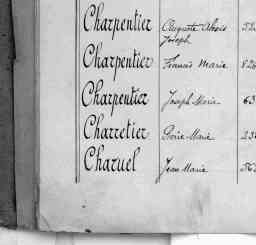 Charpentier Auguste Alexis 52
Joseph
Charpentier Francis Marie 82
Charpentier Joseph Marie 63
Charretier Pierre Marie 23
Charuel Jean Marie 56